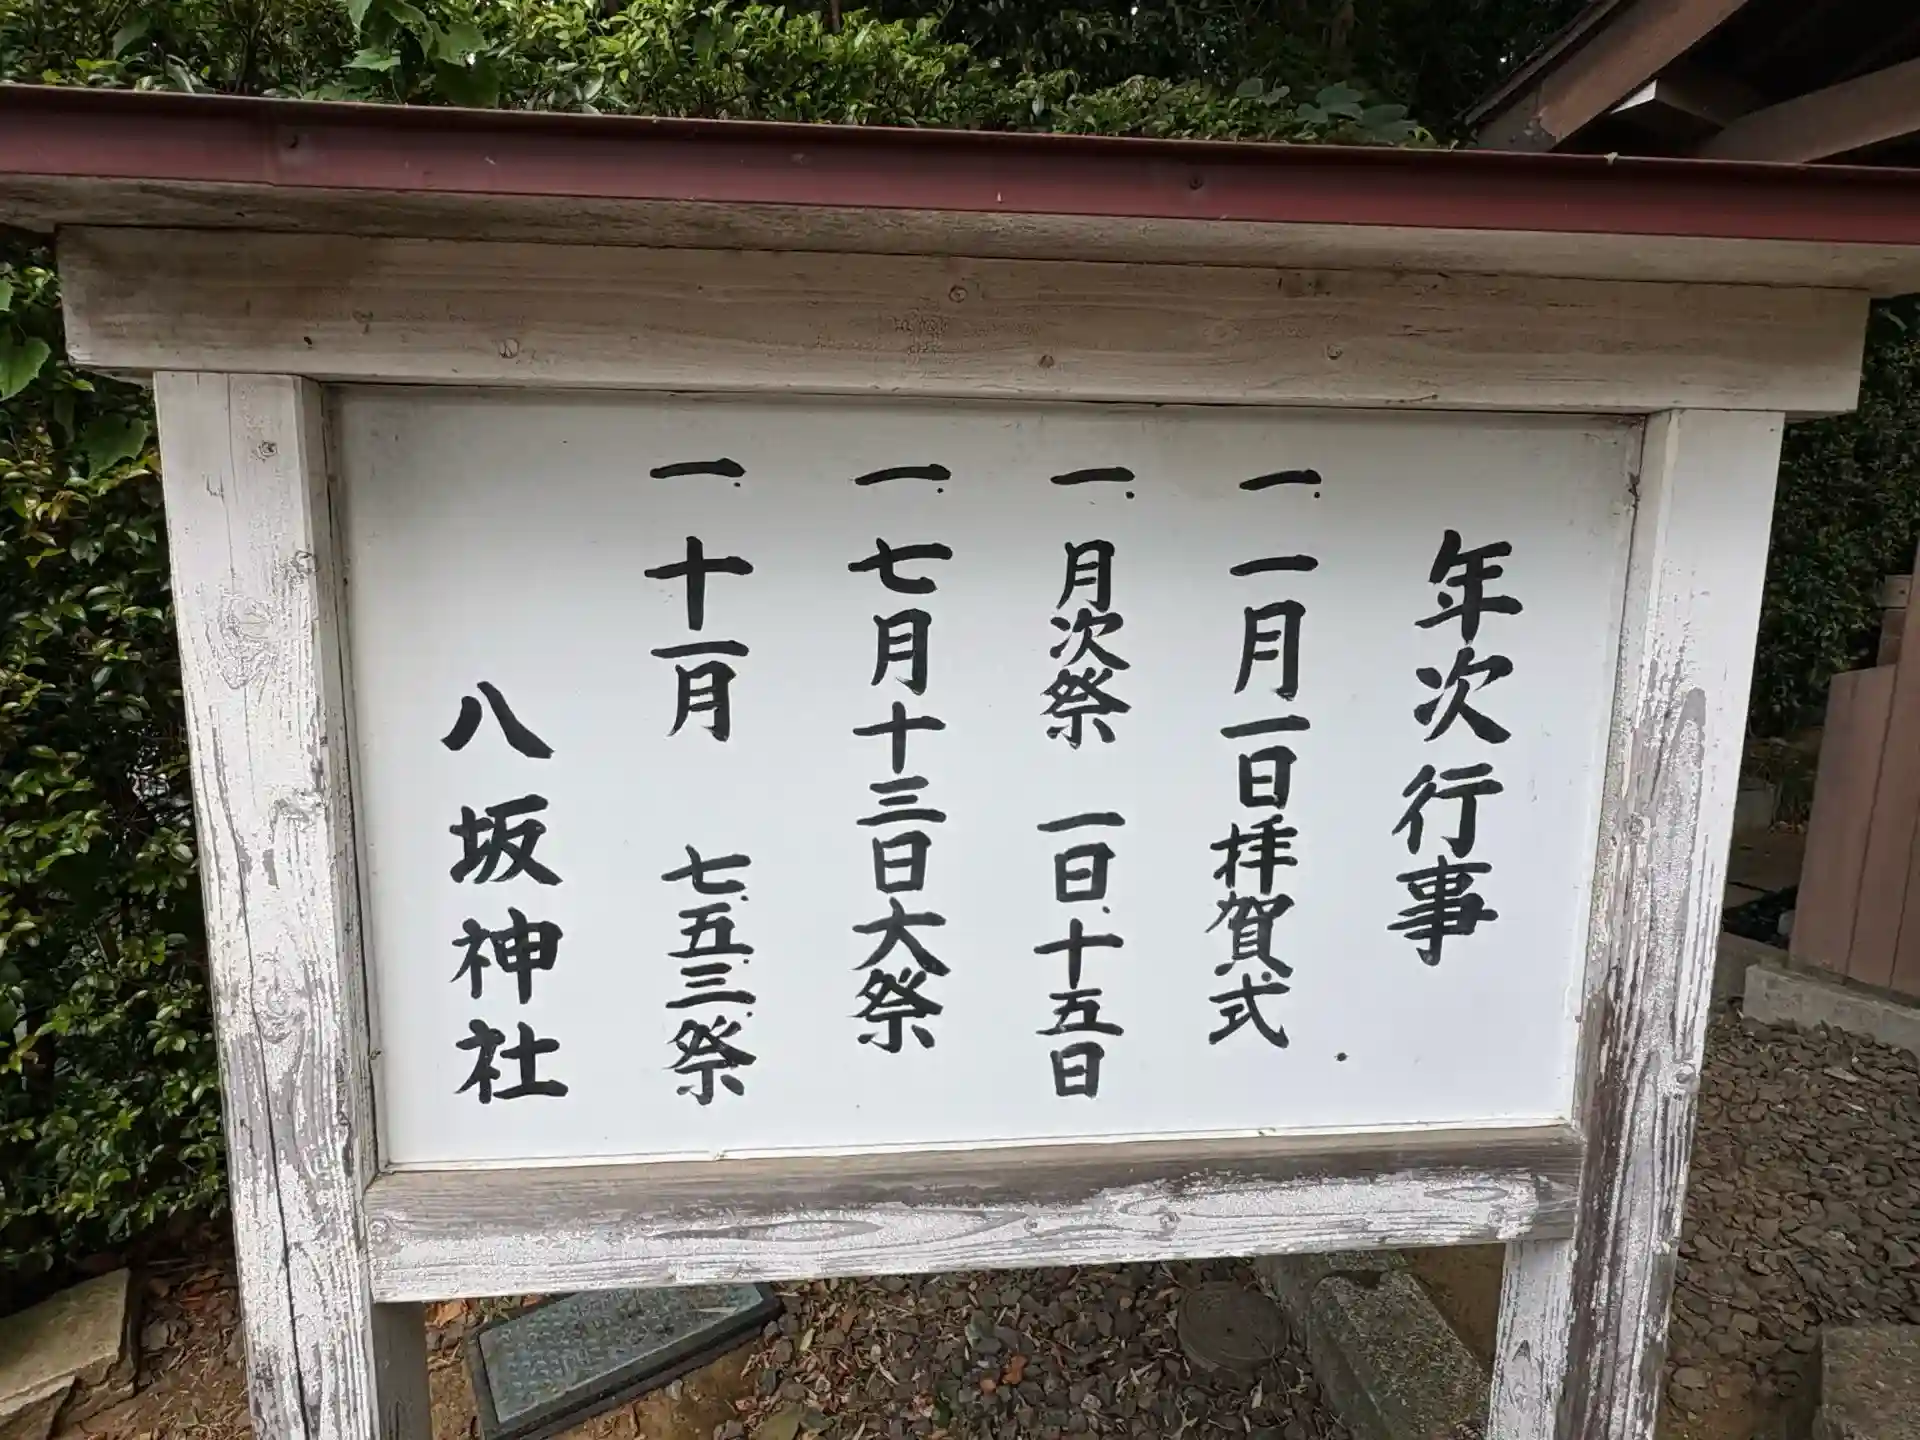 年次行事
一、一月一日拝賀式
一、月次祭 一日、十五日
一、七月十三日大祭
一、十一月 七、五、三、祭
八坂神社